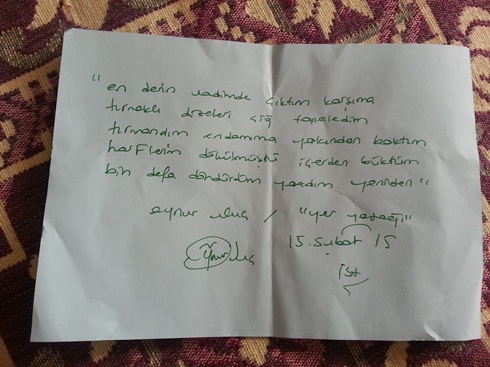 "en derin vadimde çıktım karşıma
tırnaklı dizeleri çiğ
tırmandım endamıma yakından baktım
harflerim dökülmüştü içerden büktüm
bin defa döndürdüm yazdım yeniden"
aynur uluç / "yer yatağı"
15. Şubat 15
İst